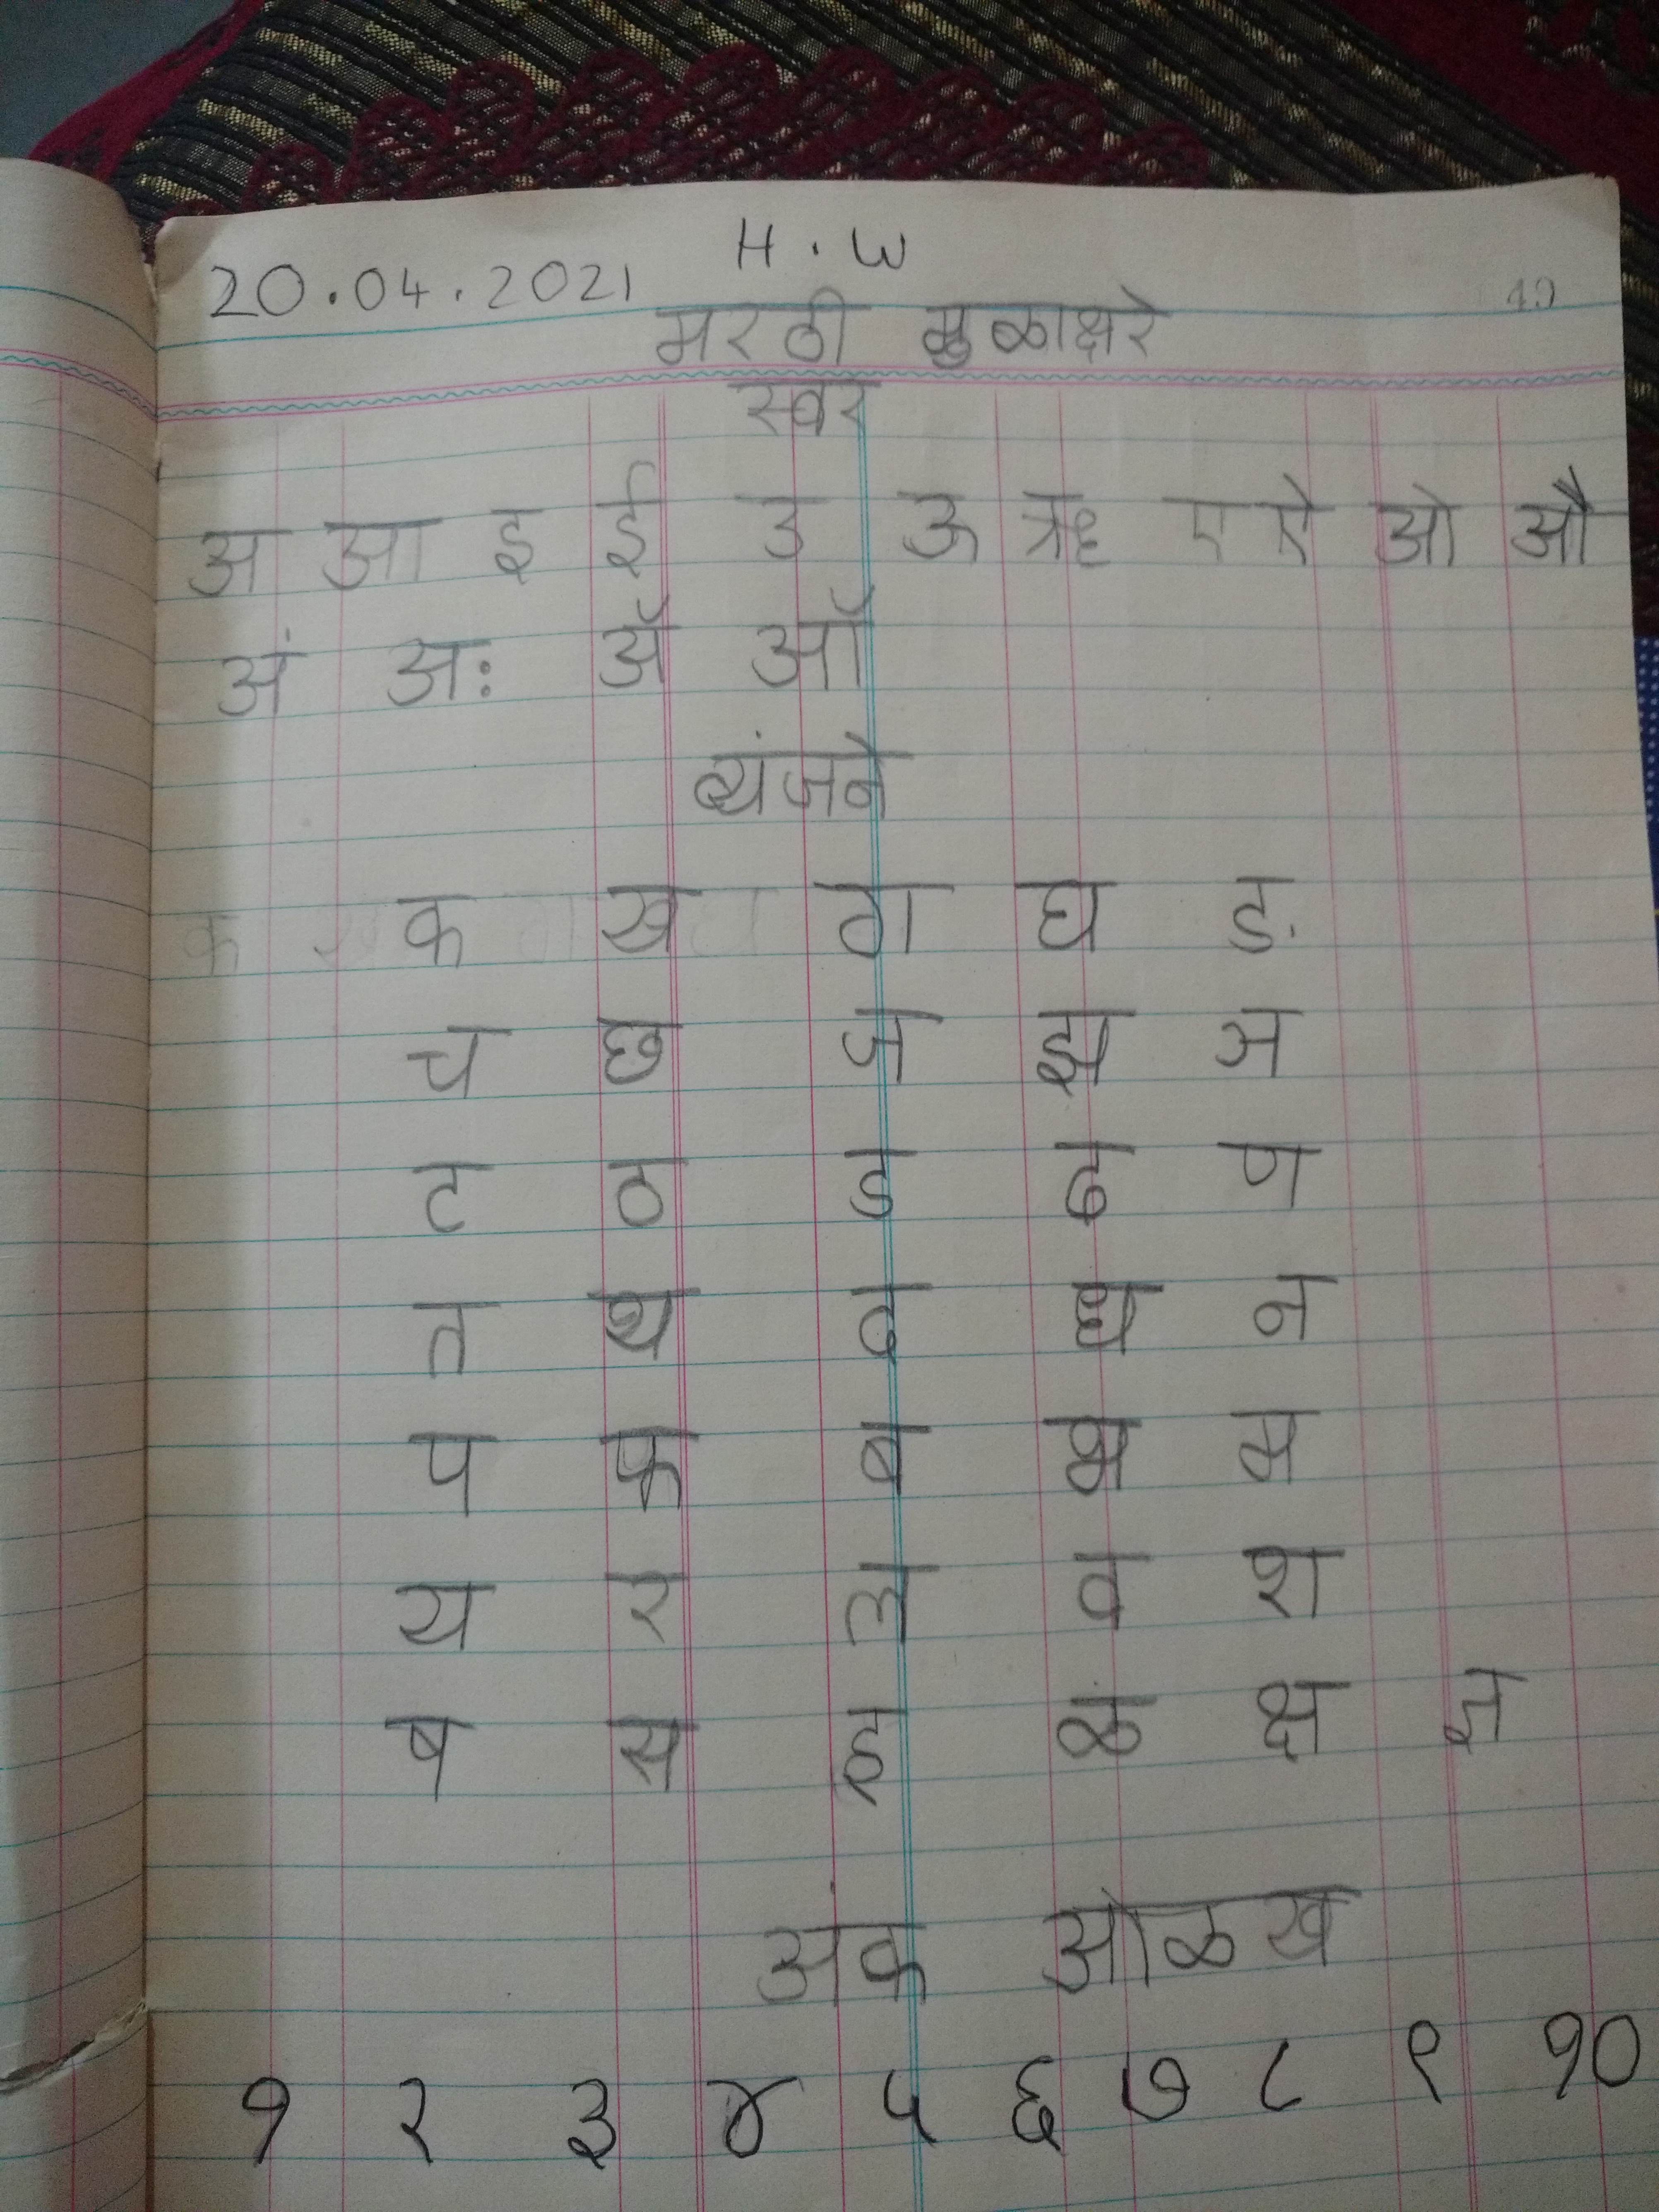 H.W
20.04.2021
49
मरठी मुळाक्षरे
स्वर
अ आ इ ई उ ऊ ऋ ए ऐ ओ औ
अं अः ॲ ऑ
व्यंजने
क ख ग घ ङ
च छ ज झ ञ
ट ठ ड ढ ण
त थ द ध न
प फ ब भ म
य र ल व श
ष स ह ळ क्ष ज्ञ
अंक ओळख
१ २ ३ ४ ५ ६ ७ ८ ९ १०